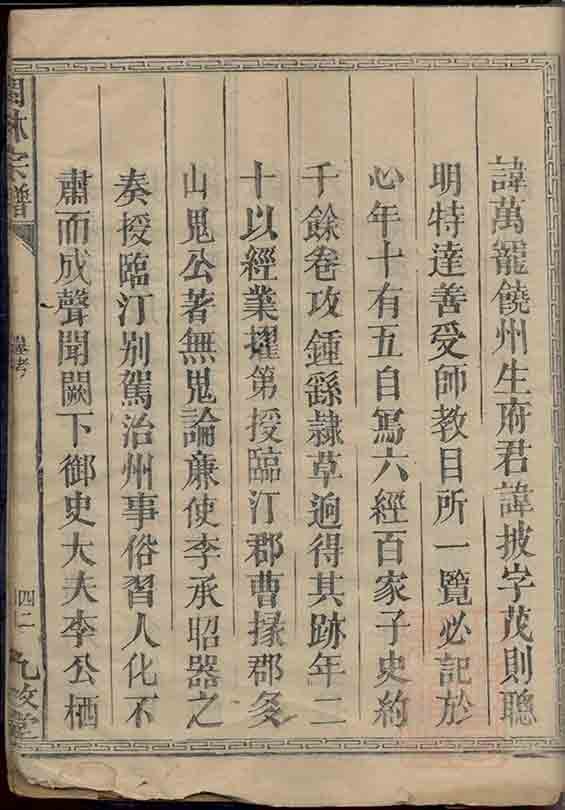 諱萬寵饒州生府君諱披字茂則聰
明特達善受師教目所一覽必記於
心年十有五自寫六經百家子史約
千餘卷攻鍾繇隷草逈得其跡年二
十以經業擢第授臨汀郡曹掾郡多
山鬼公著無鬼論廉使李承昭器之
奏授臨汀别駕治州事俗習人化不
肅而成聲聞闕下御史大夫李公栖
林宗譜
考
四二
九牧堂